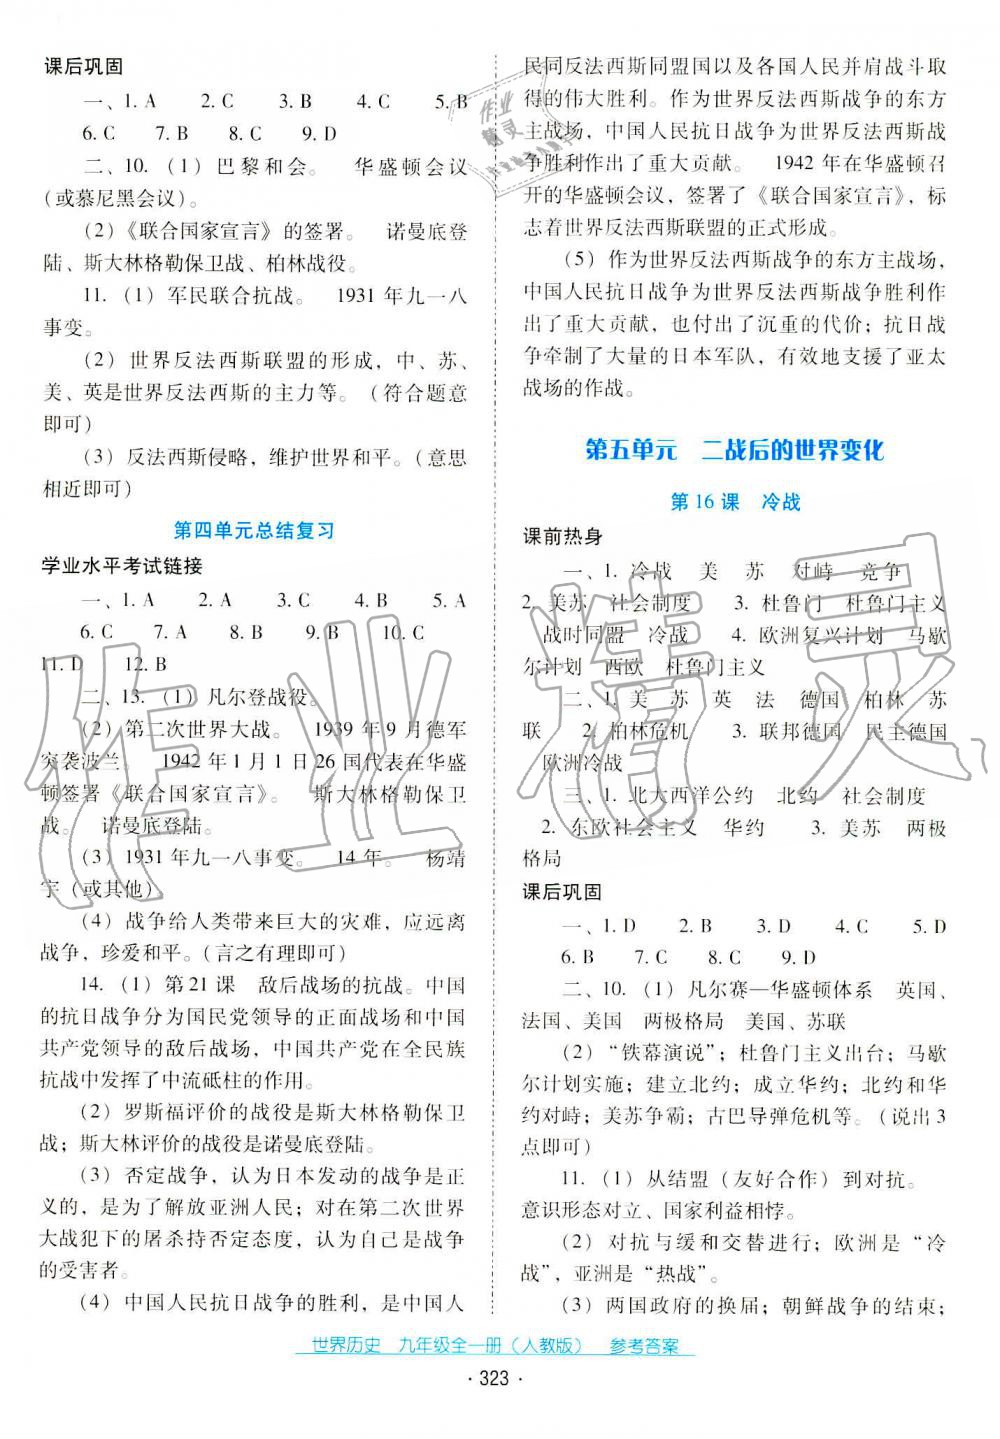 课后巩固
一、1. A　2. C　3. B　4. C　5. B
6. C　7. B　8. C　9. D
二、10.（1）巴黎和会。　华盛顿会议
（或慕尼黑会议）。
（2）《联合国家宣言》的签署。　诺曼底登
陆、斯大林格勒保卫战、柏林战役。
11.（1）军民联合抗战。　1931 年九一八
事变。
（2）世界反法西斯联盟的形成，中、苏、
美、英是世界反法西斯的主力等。（符合题意
即可）
（3）反法西斯侵略，维护世界和平。（意思
相近即可）
第四单元总结复习
学业水平考试链接
一、1. A　2. A　3. C　4. B　5. A
6. C　7. A　8. B　9. B　10. C
11. D　12. B
二、13.（1）凡尔登战役。
（2）第二次世界大战。　1939 年 9 月德军
突袭波兰。　1942 年 1 月 1 日 26 国代表在华盛
顿签署《联合国家宣言》。　斯大林格勒保卫
战。　诺曼底登陆。
（3）1931 年九一八事变。　14 年。　杨靖
宇（或其他）
（4）战争给人类带来巨大的灾难，应远离
战争，珍爱和平。（言之有理即可）
14.（1）第 21 课　敌后战场的抗战。中国
的抗日战争分为国民党领导的正面战场和中国
共产党领导的敌后战场，中国共产党在全民族
抗战中发挥了中流砥柱的作用。
（2）罗斯福评价的战役是斯大林格勒保卫
战；斯大林评价的战役是诺曼底登陆。
（3）否定战争，认为日本发动的战争是正
义的，是为了解放亚洲人民；对在第二次世界
大战犯下的屠杀持否定态度，认为自己是战争
的受害者。
（4）中国人民抗日战争的胜利，是中国人
民同反法西斯同盟国以及各国人民并肩战斗取
得的伟大胜利。作为世界反法西斯战争的东方
主战场，中国人民抗日战争为世界反法西斯战
争胜利作出了重大贡献。　1942 年在华盛顿召
开的华盛顿会议，签署了《联合国家宣言》，标
志着世界反法西斯联盟的正式形成。
（5）作为世界反法西斯战争的东方主战场，
中国人民抗日战争为世界反法西斯战争胜利作
出了重大贡献，也付出了沉重的代价；抗日战
争牵制了大量的日本军队，有效地支援了亚太
战场的作战。
第五单元　二战后的世界变化
第 16 课　冷战
课前热身
一、1. 冷战　美　苏　对峙　竞争
2. 美苏　社会制度　3. 杜鲁门　杜鲁门主义
战时同盟　冷战　4. 欧洲复兴计划　马歇
尔计划　西欧　杜鲁门主义
二、1. 美　苏　英　法　德国　柏林　苏
联　2. 柏林危机　3. 联邦德国　民主德国
欧洲冷战
三、1. 北大西洋公约　北约　社会制度
2. 东欧社会主义　华约　3. 美苏　两极
格局
课后巩固
一、1. D　2. B　3. D　4. C　5. D
6. B　7. D　8. C　9. D
二、10.（1）凡尔赛—华盛顿体系　英国、
法国、美国　两极格局　美国、苏联
（2）“铁幕演说”；杜鲁门主义出台；马歇
尔计划实施；建立北约；成立华约；北约和华
约对峙；美苏争霸；古巴导弹危机等。（说出 3
点即可）
11.（1）从结盟（友好合作）到对抗。
意识形态对立、国家利益相悖。
（2）对抗与缓和交替进行；欧洲是“冷
战”，亚洲是“热战”。
（3）两国政府的换届；朝鲜战争的结束；
世界历史　九年级全一册（人教版）　参考答案
· 323 ·
作业精灵